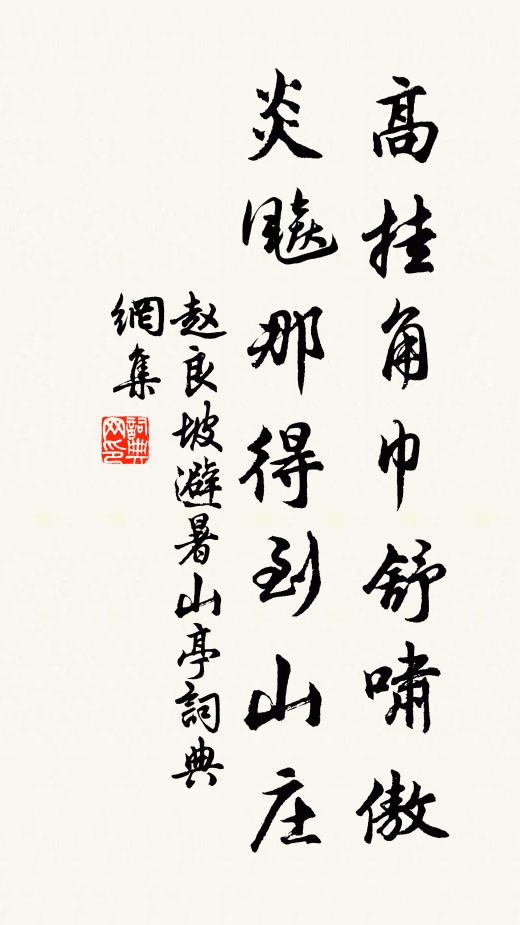 高挂角巾舒啸傲
炎飚那得到山庄
赵良坡避暑山亭詞典
網集
詞典
网印